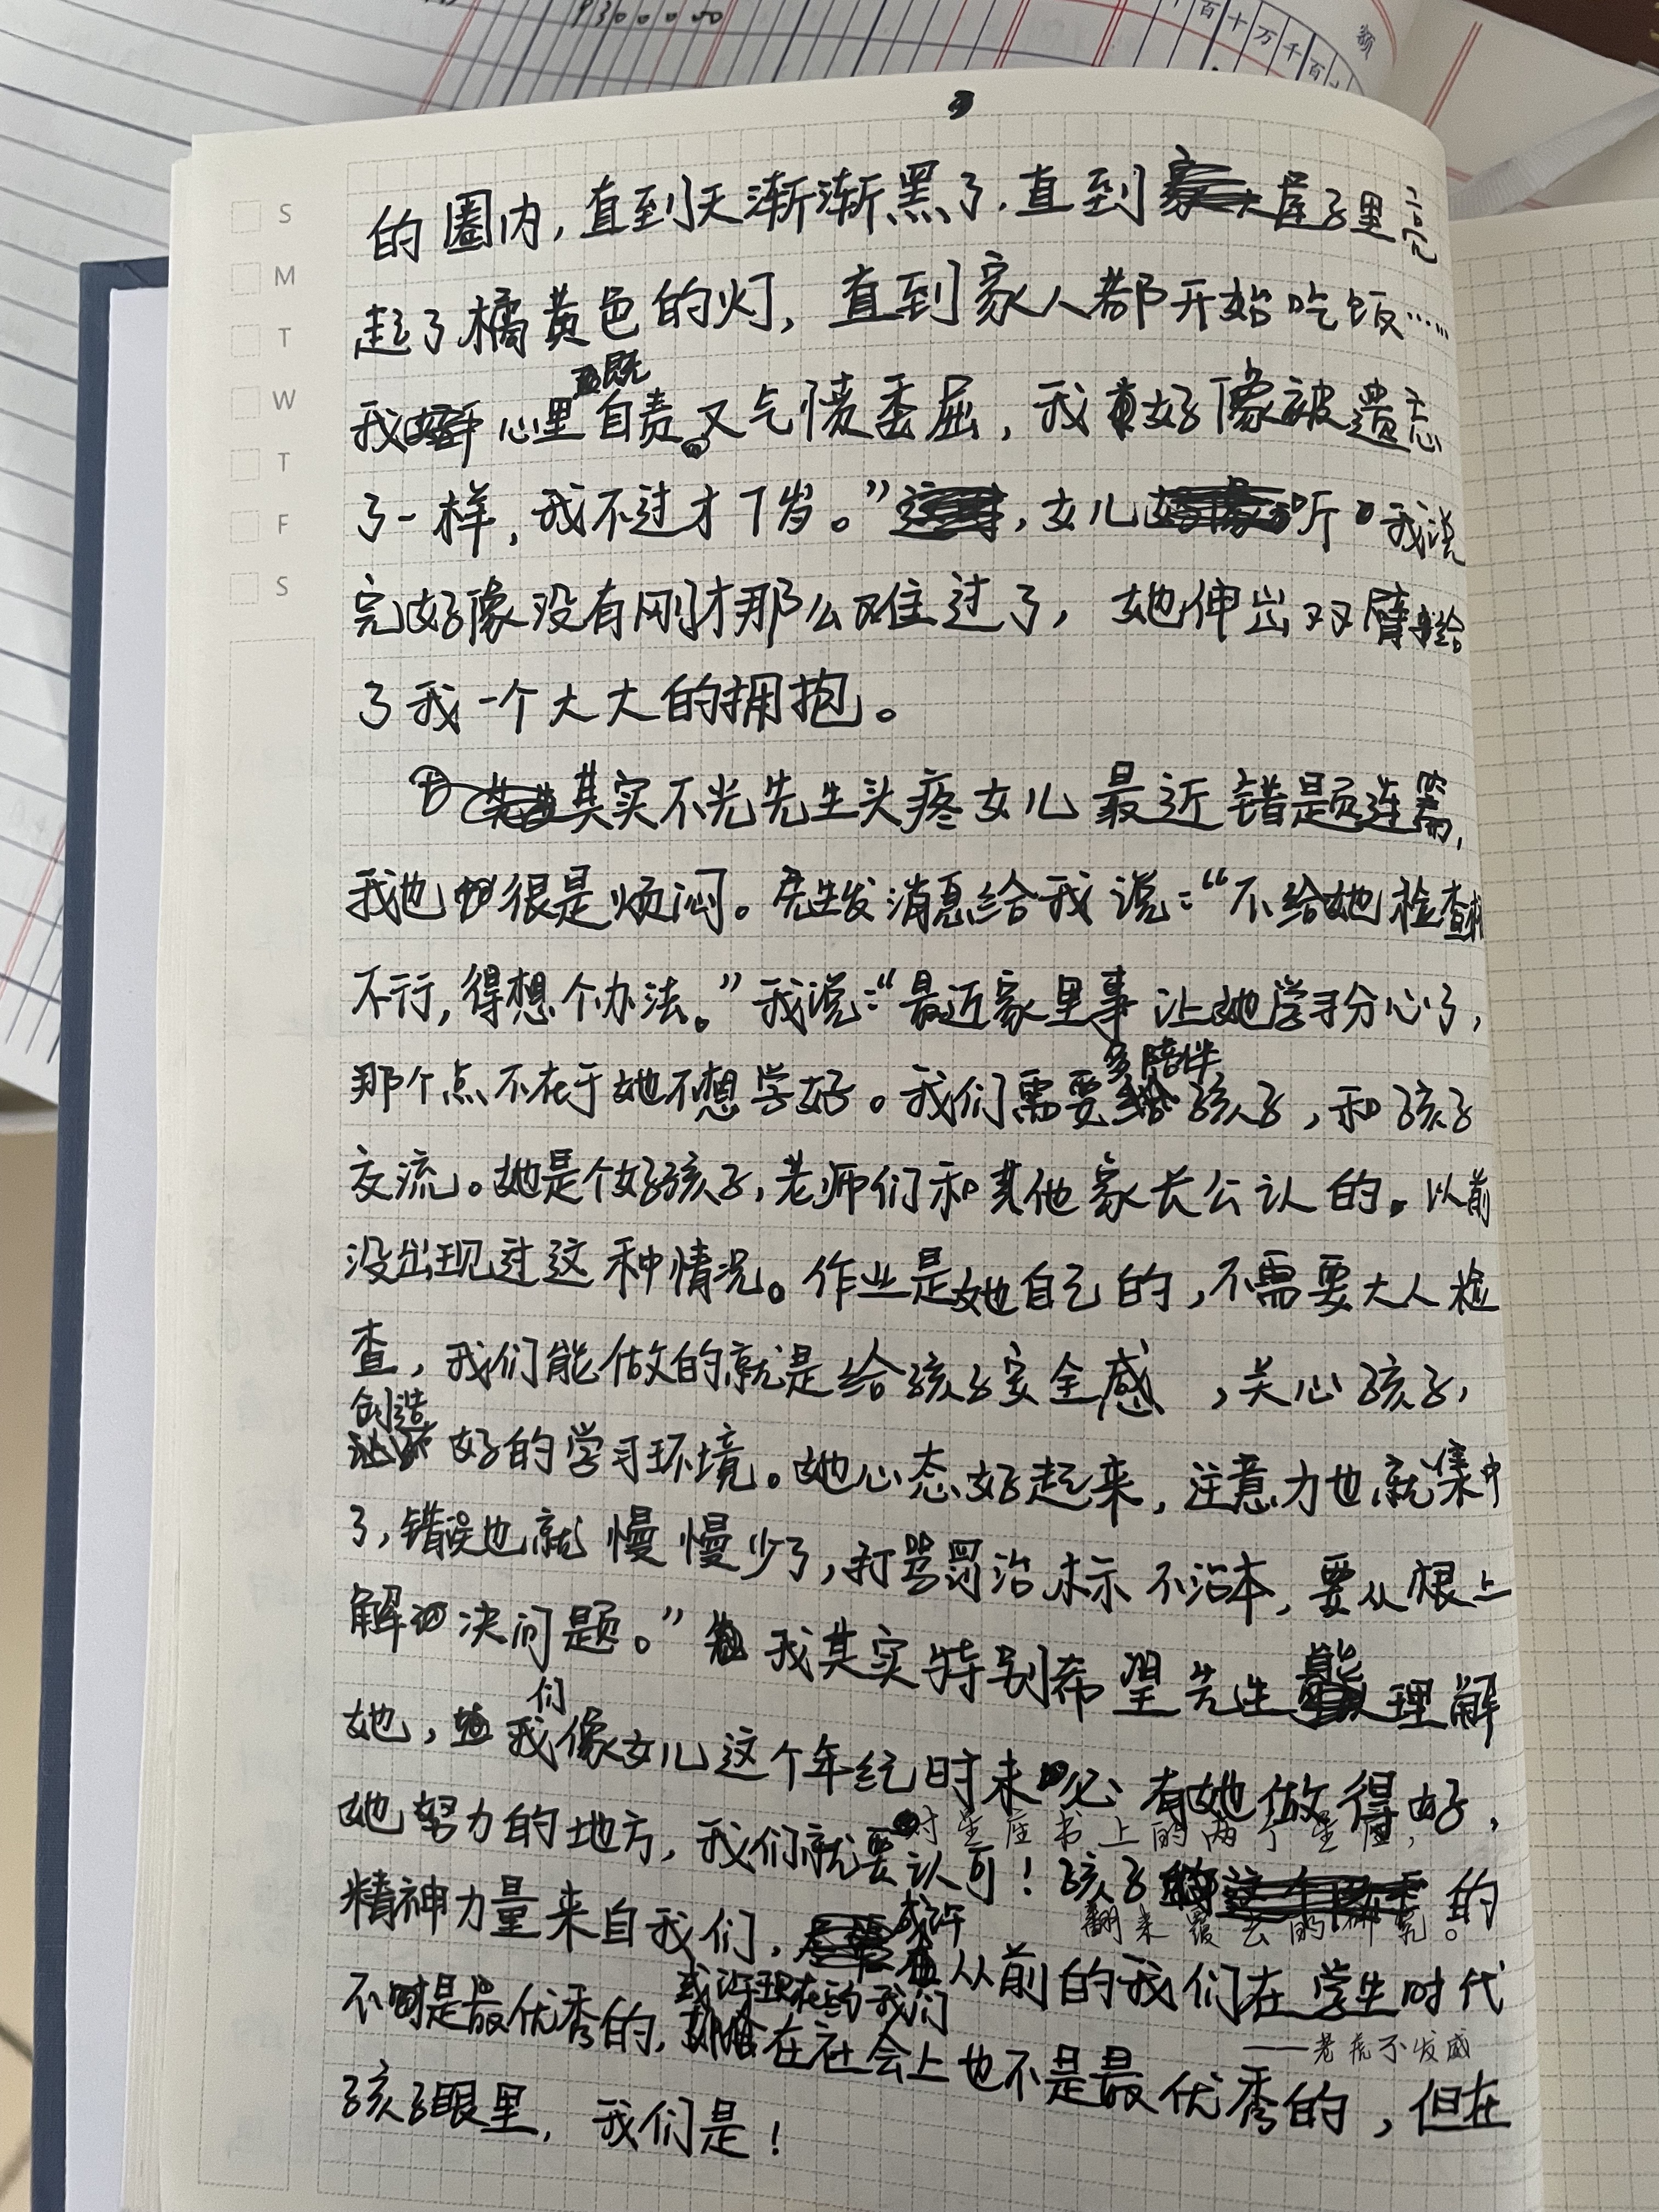 930000
百十万千百
额
S
M
T
W
T
F
S
的圈内，直到天渐渐黑了.直到屋子里亮
起了橘黄色的灯，直到家人都开始吃饭……
既
我心里自责。又气愤委屈，我好像被遗忘
了一样，我不过才7岁。”，女儿听我说
完好像没有刚才那么难过了，她伸出双臂给
了我一个大大的拥抱。
其实不光先生头疼女儿最近错题连篇，
我也很是烦闷。先生发消息给我说：“不给她检查
不行，得想个办法。”我说：“最近家里事让她学习分心了，
多陪伴
那个点不在于她不想学好。我们需要孩子，和孩子
交流。她是个好孩子，老师们和其他家长公认的。以前
没出现过这种情况。作业是她自己的，不需要大人检
查，我们能做的就是给孩子安全感，关心孩子，
创造
好的学习环境。她心态好起来，注意力也就集中
了，错误也就慢慢少了，打骂罚治标不治本，要从根上
解决问题。”我其实特别希望先生能理解
们
她，我像女儿这个年纪时未必有她做得好，
她努力的地方，我们就要认可！孩子的
对星座书上的两个星座，
精神力量来自我们，
翻来覆去的研究。
或许
从前的我们在学生时代
不是最优秀的，
或许现在的我们
在社会上也不是最优秀的，但在
——老虎不发威
孩子眼里，我们是！